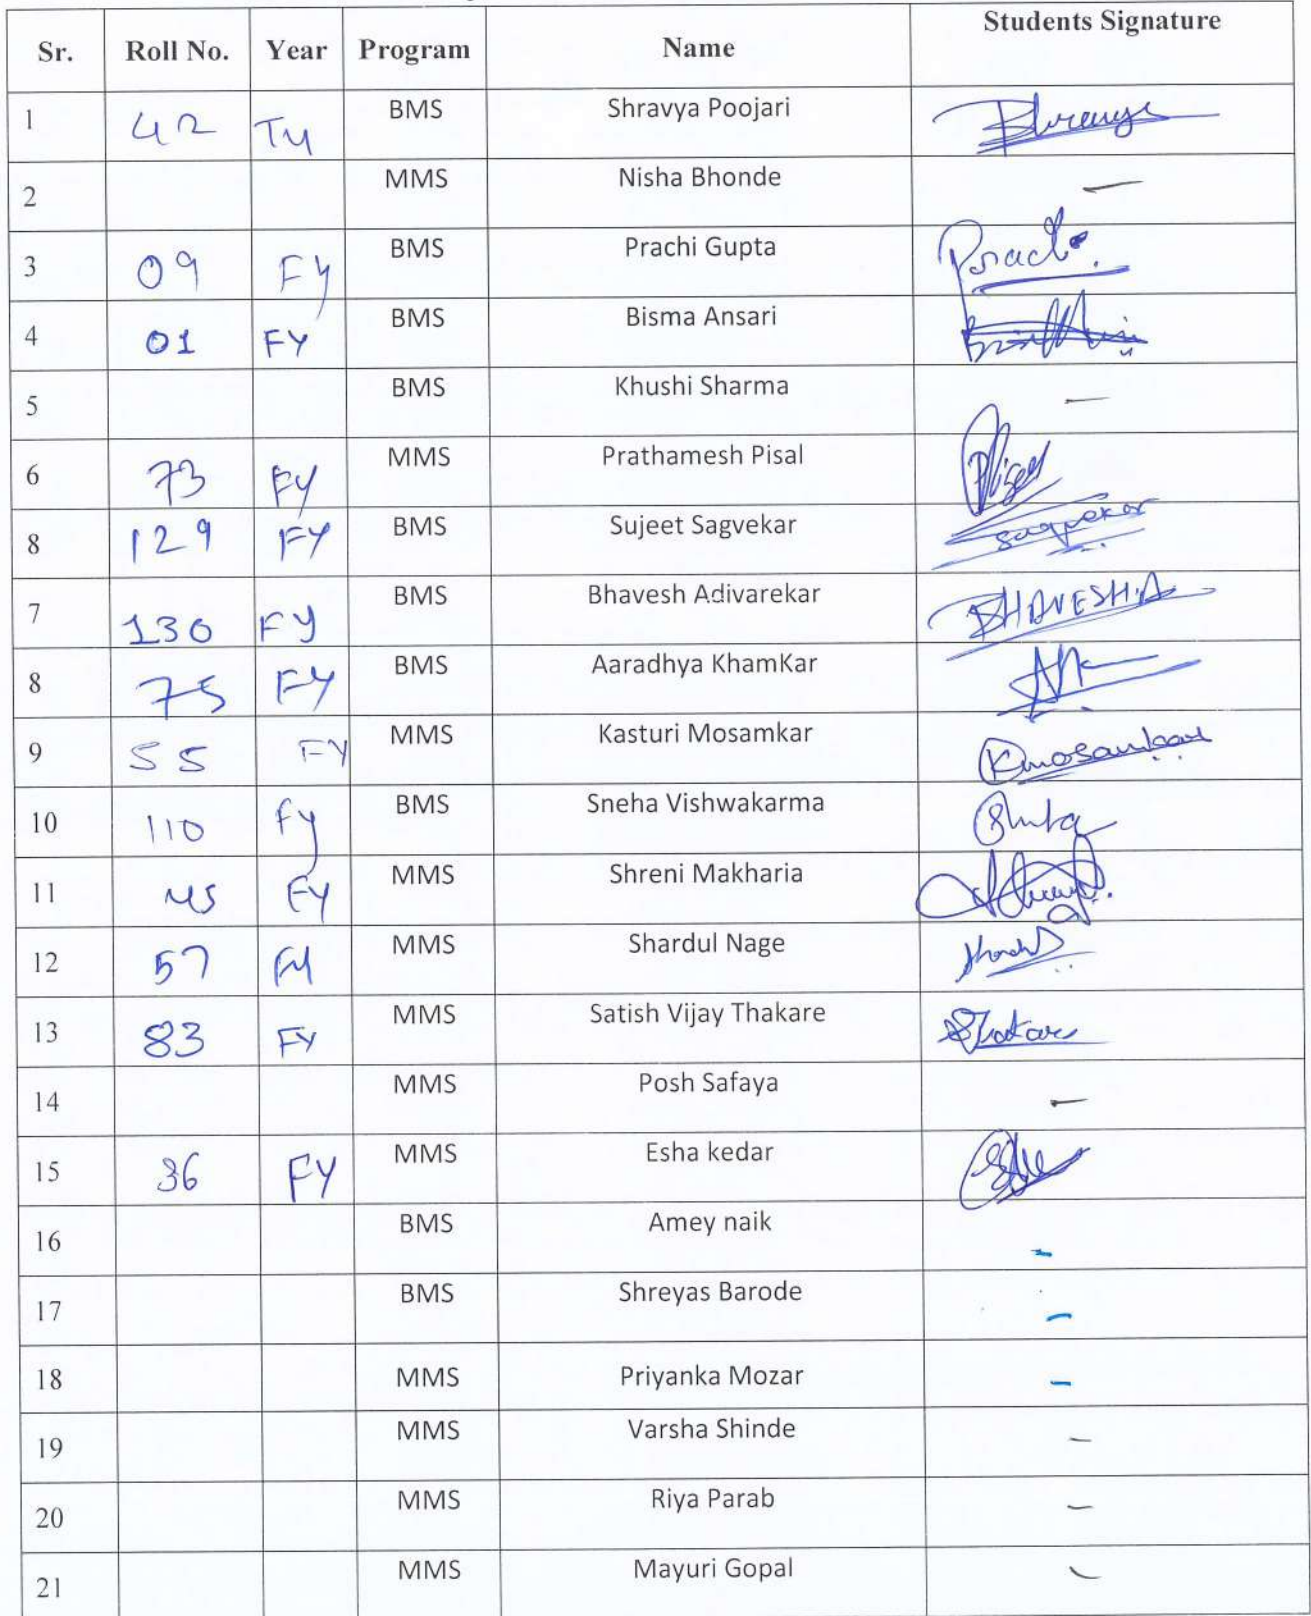 Sr. Roll No. Year Program Name Students Signature
1 42 Ty BMS Shravya Poojari
2 MMS Nisha Bhonde —
3 09 FY BMS Prachi Gupta Prachi
4 01 FY BMS Bisma Ansari
5 BMS Khushi Sharma —
6 73 FY MMS Prathamesh Pisal
8 129 FY BMS Sujeet Sagvekar Sagvekar
7 130 FY BMS Bhavesh Adivarekar BHAVESH.A
8 75 FY BMS Aaradhya KhamKar
9 55 FY MMS Kasturi Mosamkar Kmosamkar
10 110 Fy BMS Sneha Vishwakarma
11 45 FY MMS Shreni Makharia
12 57 FY MMS Shardul Nage
13 83 FY MMS Satish Vijay Thakare
14 MMS Posh Safaya —
15 36 FY MMS Esha kedar
16 BMS Amey naik -
17 BMS Shreyas Barode -
18 MMS Priyanka Mozar -
19 MMS Varsha Shinde -
20 MMS Riya Parab -
21 MMS Mayuri Gopal -